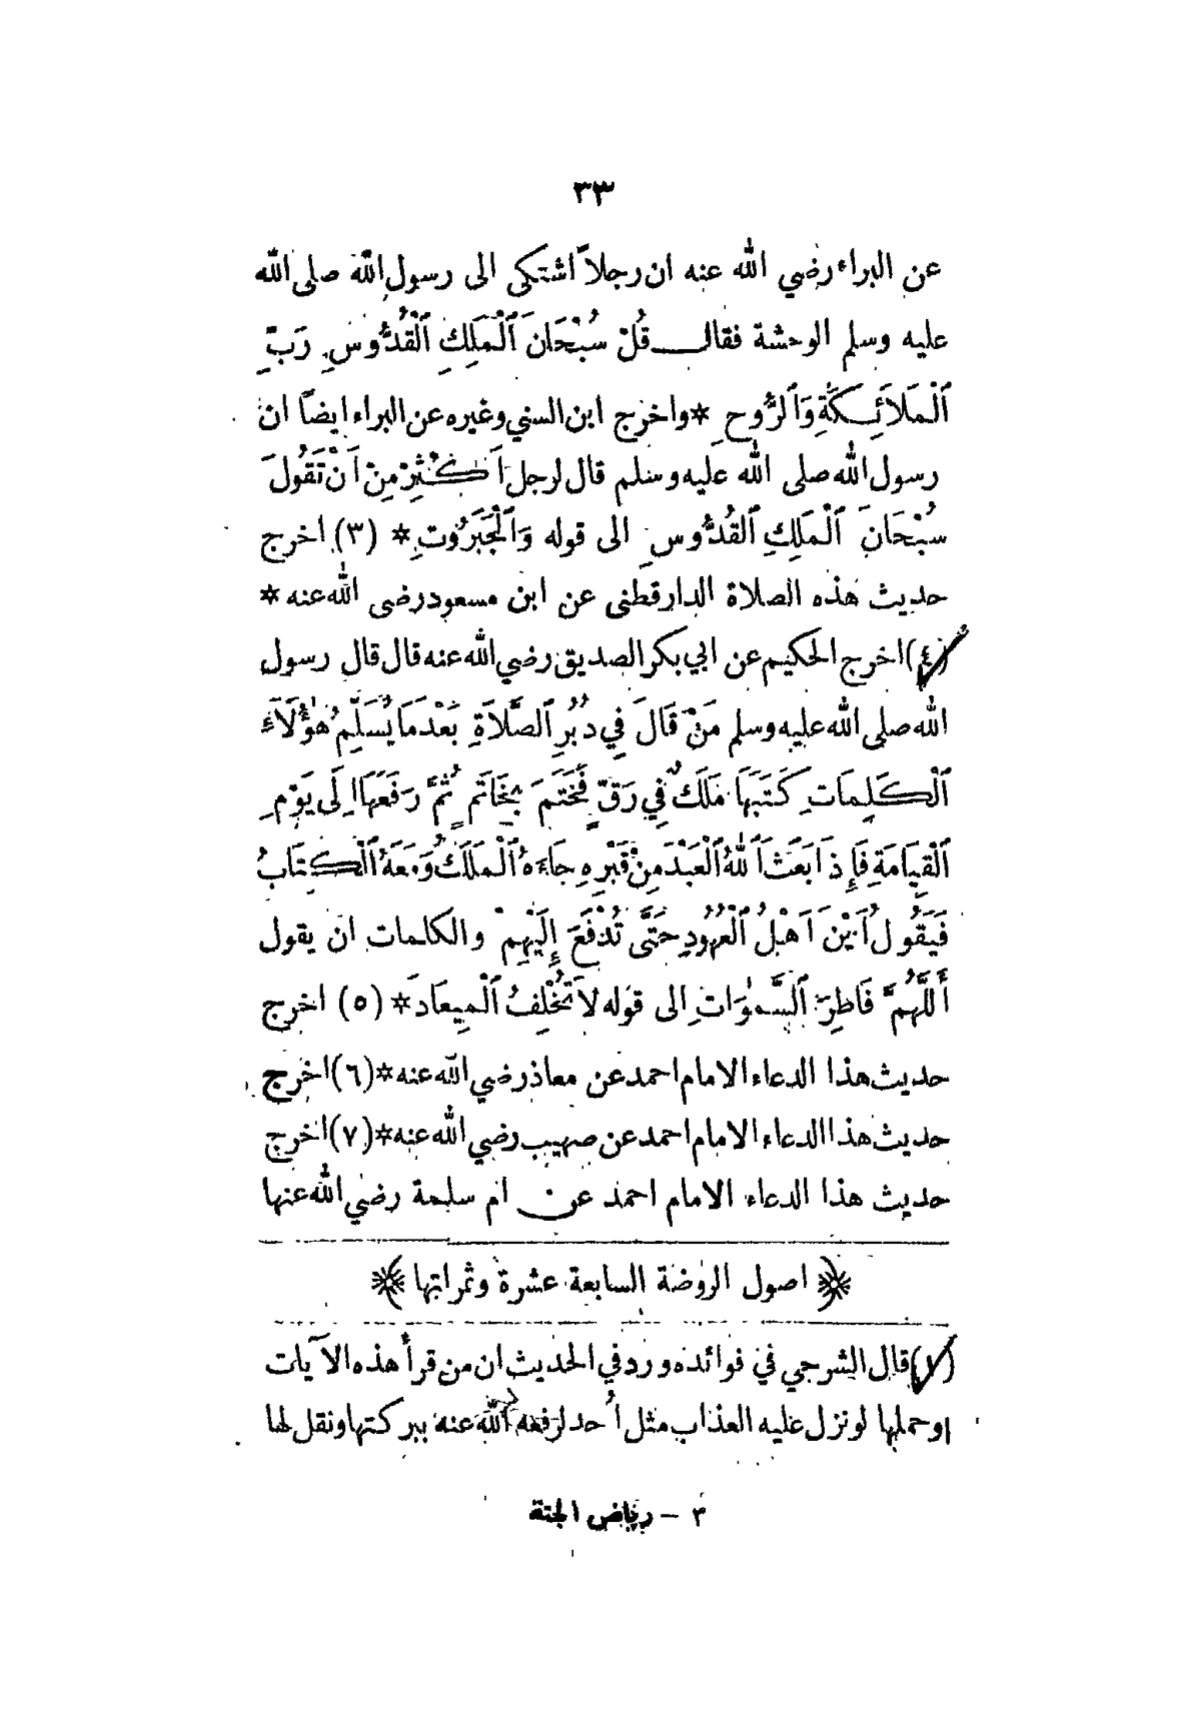 ٣٣
عن البراء رضي الله عنه ان رجلاً اشتكى الى رسول الله صلى الله
عليه وسلم الوحشة فقال قُلْ سُبْحَانَ ٱلْمَلِكِ ٱلْقُدُّوسِ رَبِّ
ٱلْمَلَائِكَةِ وَٱلرُّوحِ * واخرج ابن السني وغيره عن البراء ايضاً ان
رسول الله صلى الله عليه وسلم قال لرجل أَكْثِرْ مِنْ اَنْ تَقُولَ
سُبْحَانَ ٱلْمَلِكِ ٱلقُدُّوسِ الى قوله وَٱلْجَبَرُوتِ * (٣) اخرج
حديث هذه الصلاة الدارقطنى عن ابن مسعود رضى الله عنه *
(٤) اخرج الحكيم عن ابي بكر الصديق رضي الله عنه قال قال رسول
الله صلى الله عليه وسلم مَنْ قَالَ فِي دُبُرِ ٱلصَّلَاةِ بَعْدَ مَا يُسَلِّمُ هٰؤُلَآءِ
ٱلْكَلِمَاتِ كَتَبَهَا مَلَكٌ فِي رَقٍّ فَخَتَمَ بِخَاتَمٍ ثُمَّ رَفَعَهَا اِلَى يَوْمِ
ٱلْقِيَامَةِ فَإِذَا بَعَثَ ٱللهُ ٱلْعَبْدَ مِنْ قَبْرِهِ جَاءَهُ ٱلْمَلَكُ وَمَعَهُ ٱلْكِتَابُ
فَيَقُولُ أَيْنَ اَهْلُ ٱلْعُهُودِ حَتَّى تُدْفَعَ إِلَيْهِمْ والكلمات ان يقول
أَللَّهُمَّ فَاطِرَ ٱلسَّمٰوَاتِ الى قوله لَا تُخْلِفُ ٱلْمِيعَادَ * (٥) اخرج
حديث هذا الدعاء الامام احمد عن معاذ رضي الله عنه * (٦) اخرج
حديث هذا الدعاء الامام احمد عن صهيب رضي الله عنه * (٧) اخرج
حديث هذا الدعاء الامام احمد عن ام سلمة رضي الله عنها
﴿ اصول الروضة السابعة عشرة وثمراتها ﴾
(١) قال الشرجي في فوائده ورد في الحديث ان من قرأ هذه الآيات
او حملها لو نزل عليه العذاب مثل أحد لرفعه الله عنه ببركتها ونقل لها
٣ – رياض الجنة